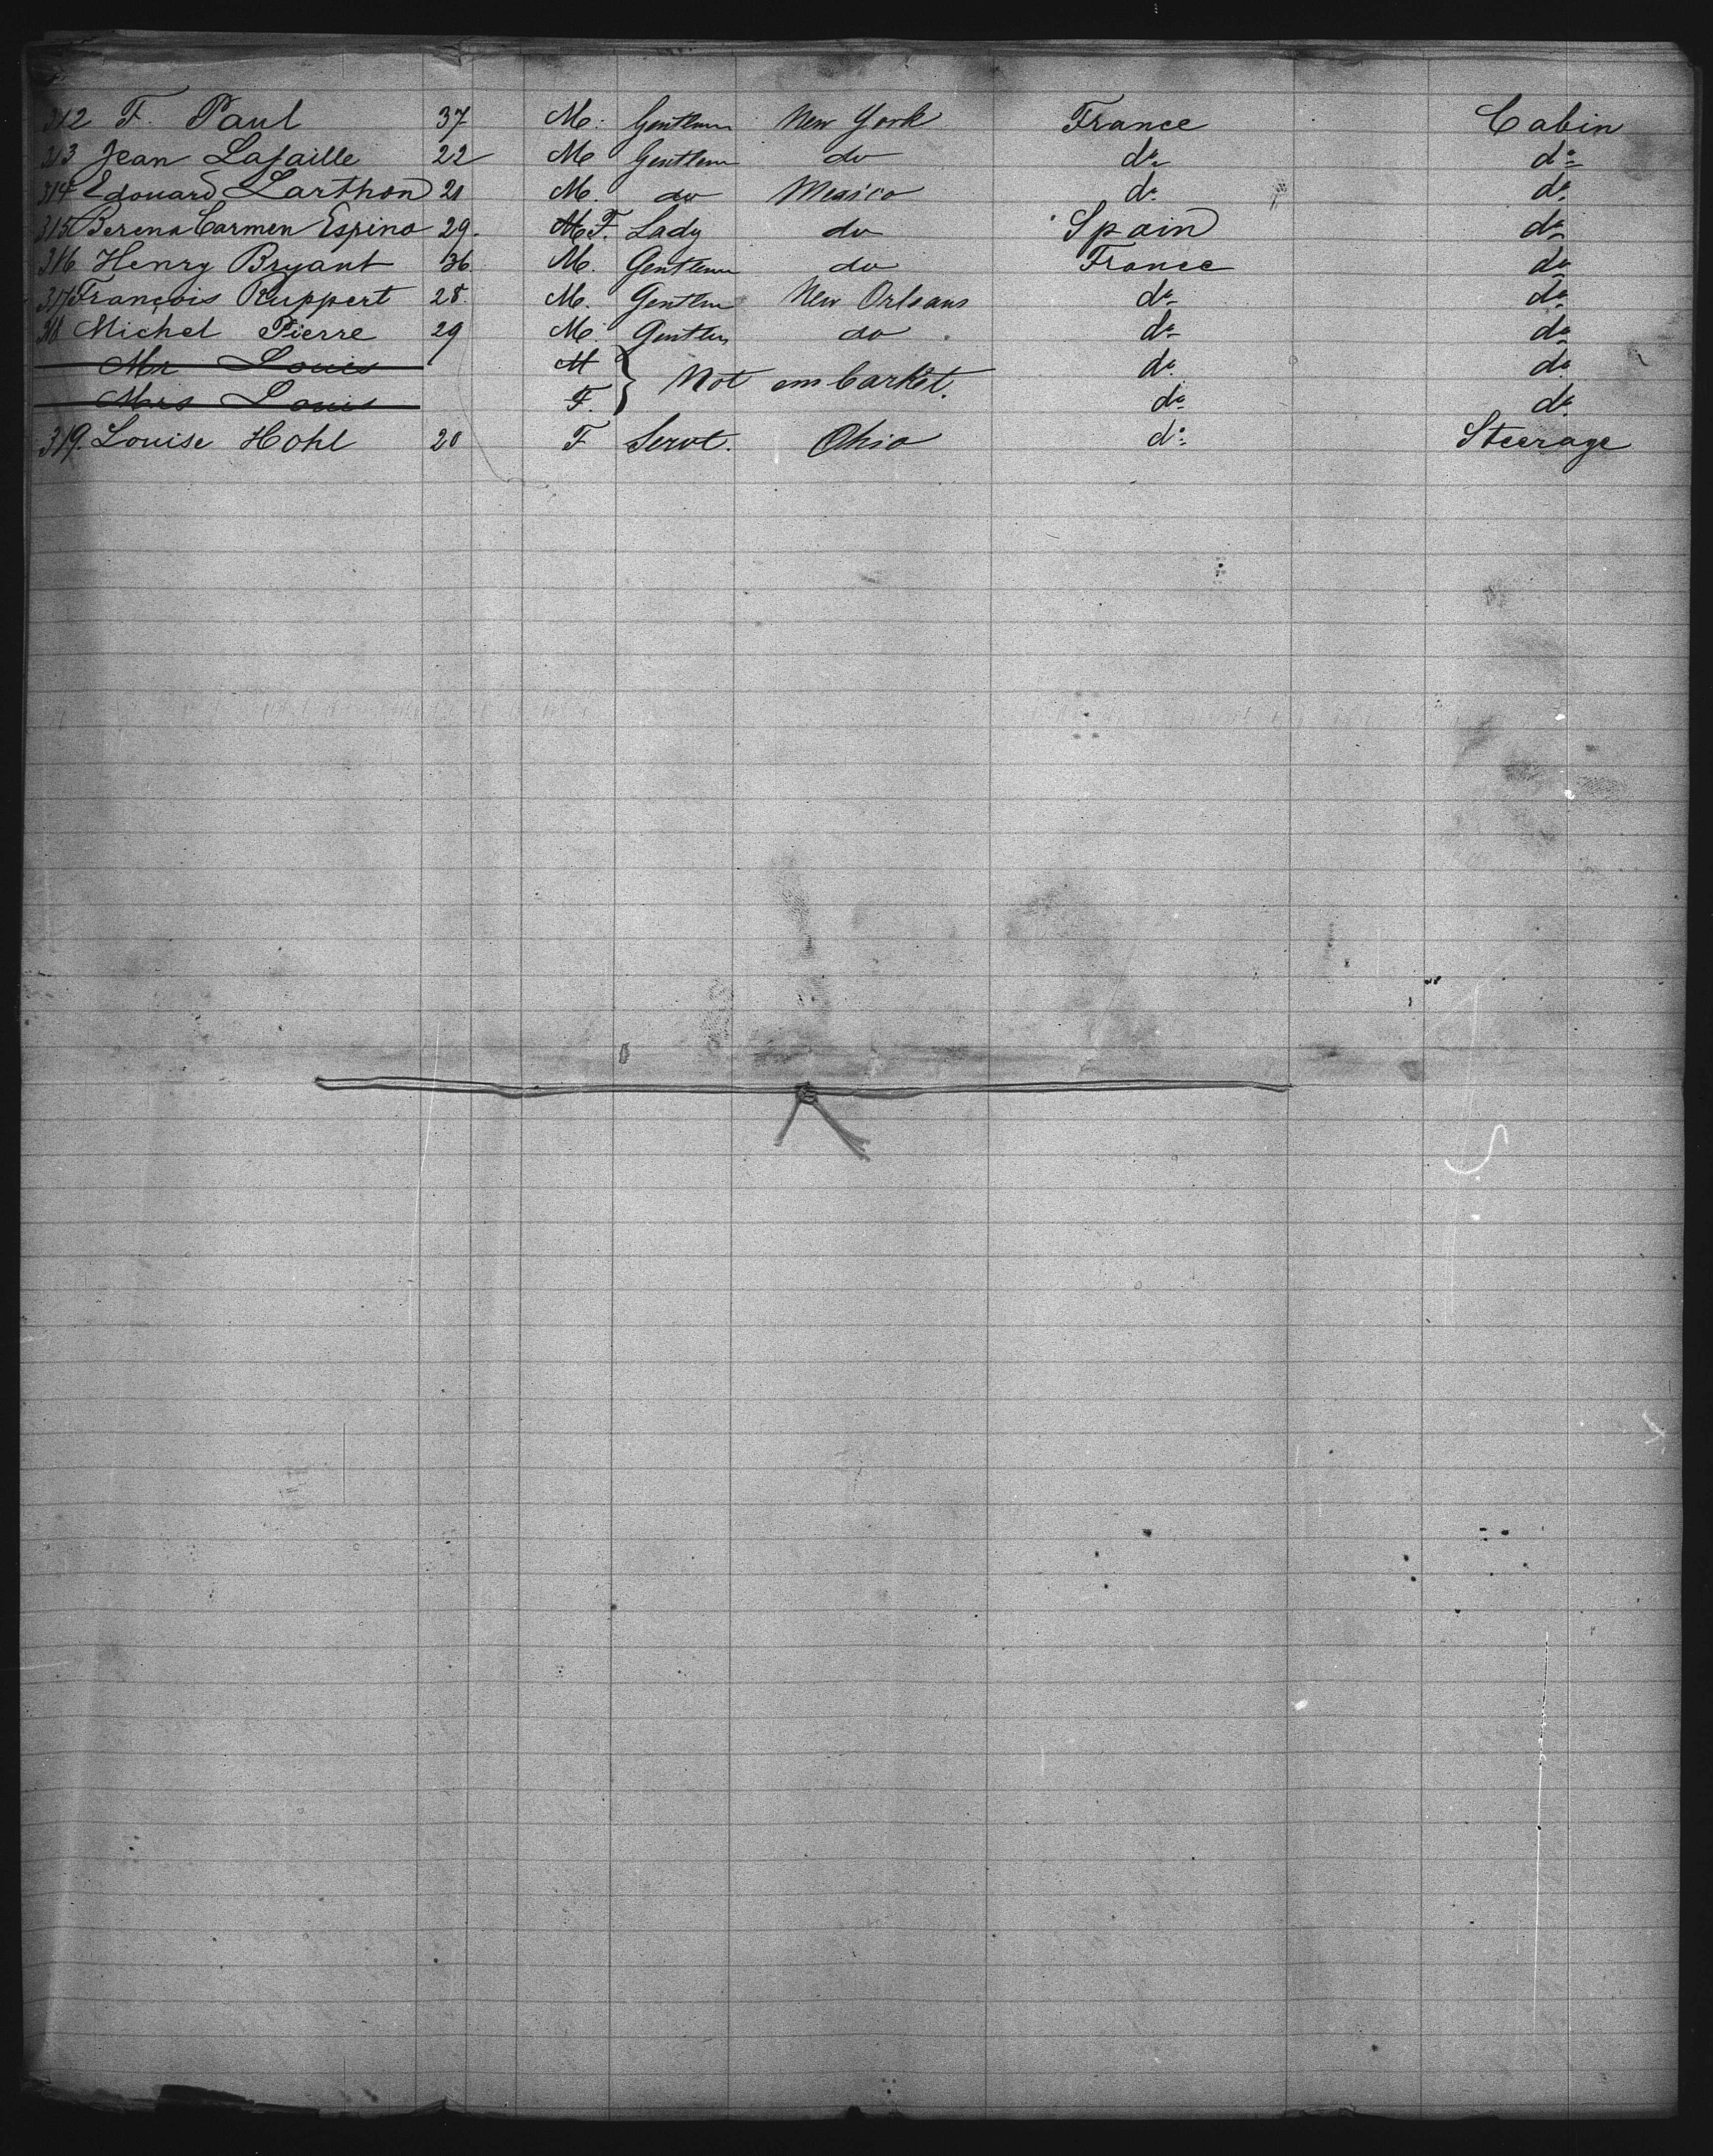 312 F. Paul 37 M. Gentlemn New York France Cabin
313 Jean Lafaille 22 M Gentlem do do do
314 Edouard Larthon 21 M. do Mexico do do
315 Berena Carmen Espino 29. M F. Lady do Spain do
316 Henry Bryant 36 M. Gentlemn do France do
317 François Ruppert 28. M. Gentlm New Orleans do do
318 Michel Pierre 29 M. Gentlm do do do
Mr Louis M } Not embarket. do do
Mrs Louis F. do do
319. Louise Hohl 20 F Servt. Ohio do Steerage